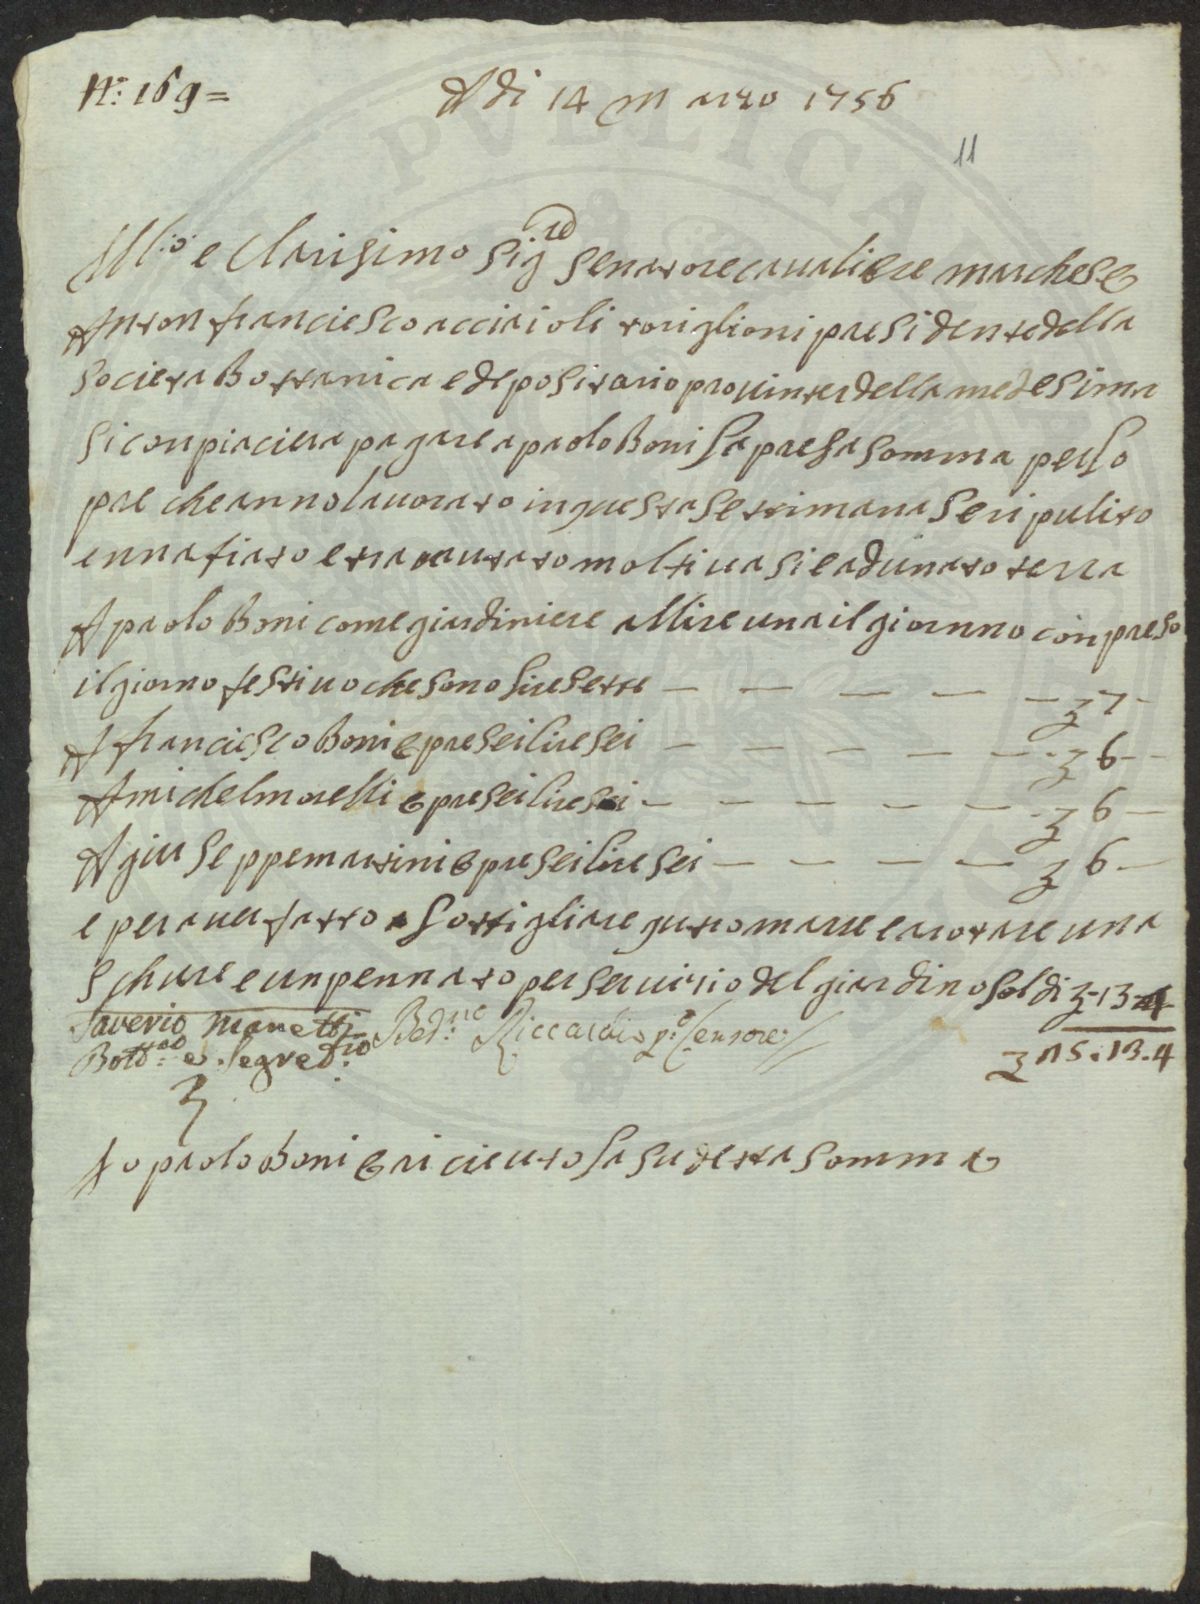 N: 169=
A di 14 marzo 1756
11
Ill:o e Clarisimo Sig re Senatore caualiere marchese
Anton franciesco acciaioli toriglioni presidente della
Societa Bottanica e depositario prouinter della medesima
si conpiaciera pagare a paolo Boni la presa somma per lo
pre che anno lauorato in questa settimana se ripulito
ennafiato e tra uasato molti uasi e adunato terra
A paolo Boni come giardiniere allire una il giornno conpreso
il giorno festiuo che sono lire sette — — — — — 7-
A franciesco Boni e pre sei lire sei — — — — — 6-
A michel morelli e pre sei lire sei — — — — — 6 —
A giuseppe martini e pre sei lire sei — — — — 6 —
e per auer fatto asottigliare quatro marre e arotare una
schure e un pennato per seruizio del giardino soldi -13-4
Saverio Manetti Bed:ne Riccardi p:o Censore
Bott:co e Segret:rio
25.13.4
Io paolo Boni e riceuto la su detta somma